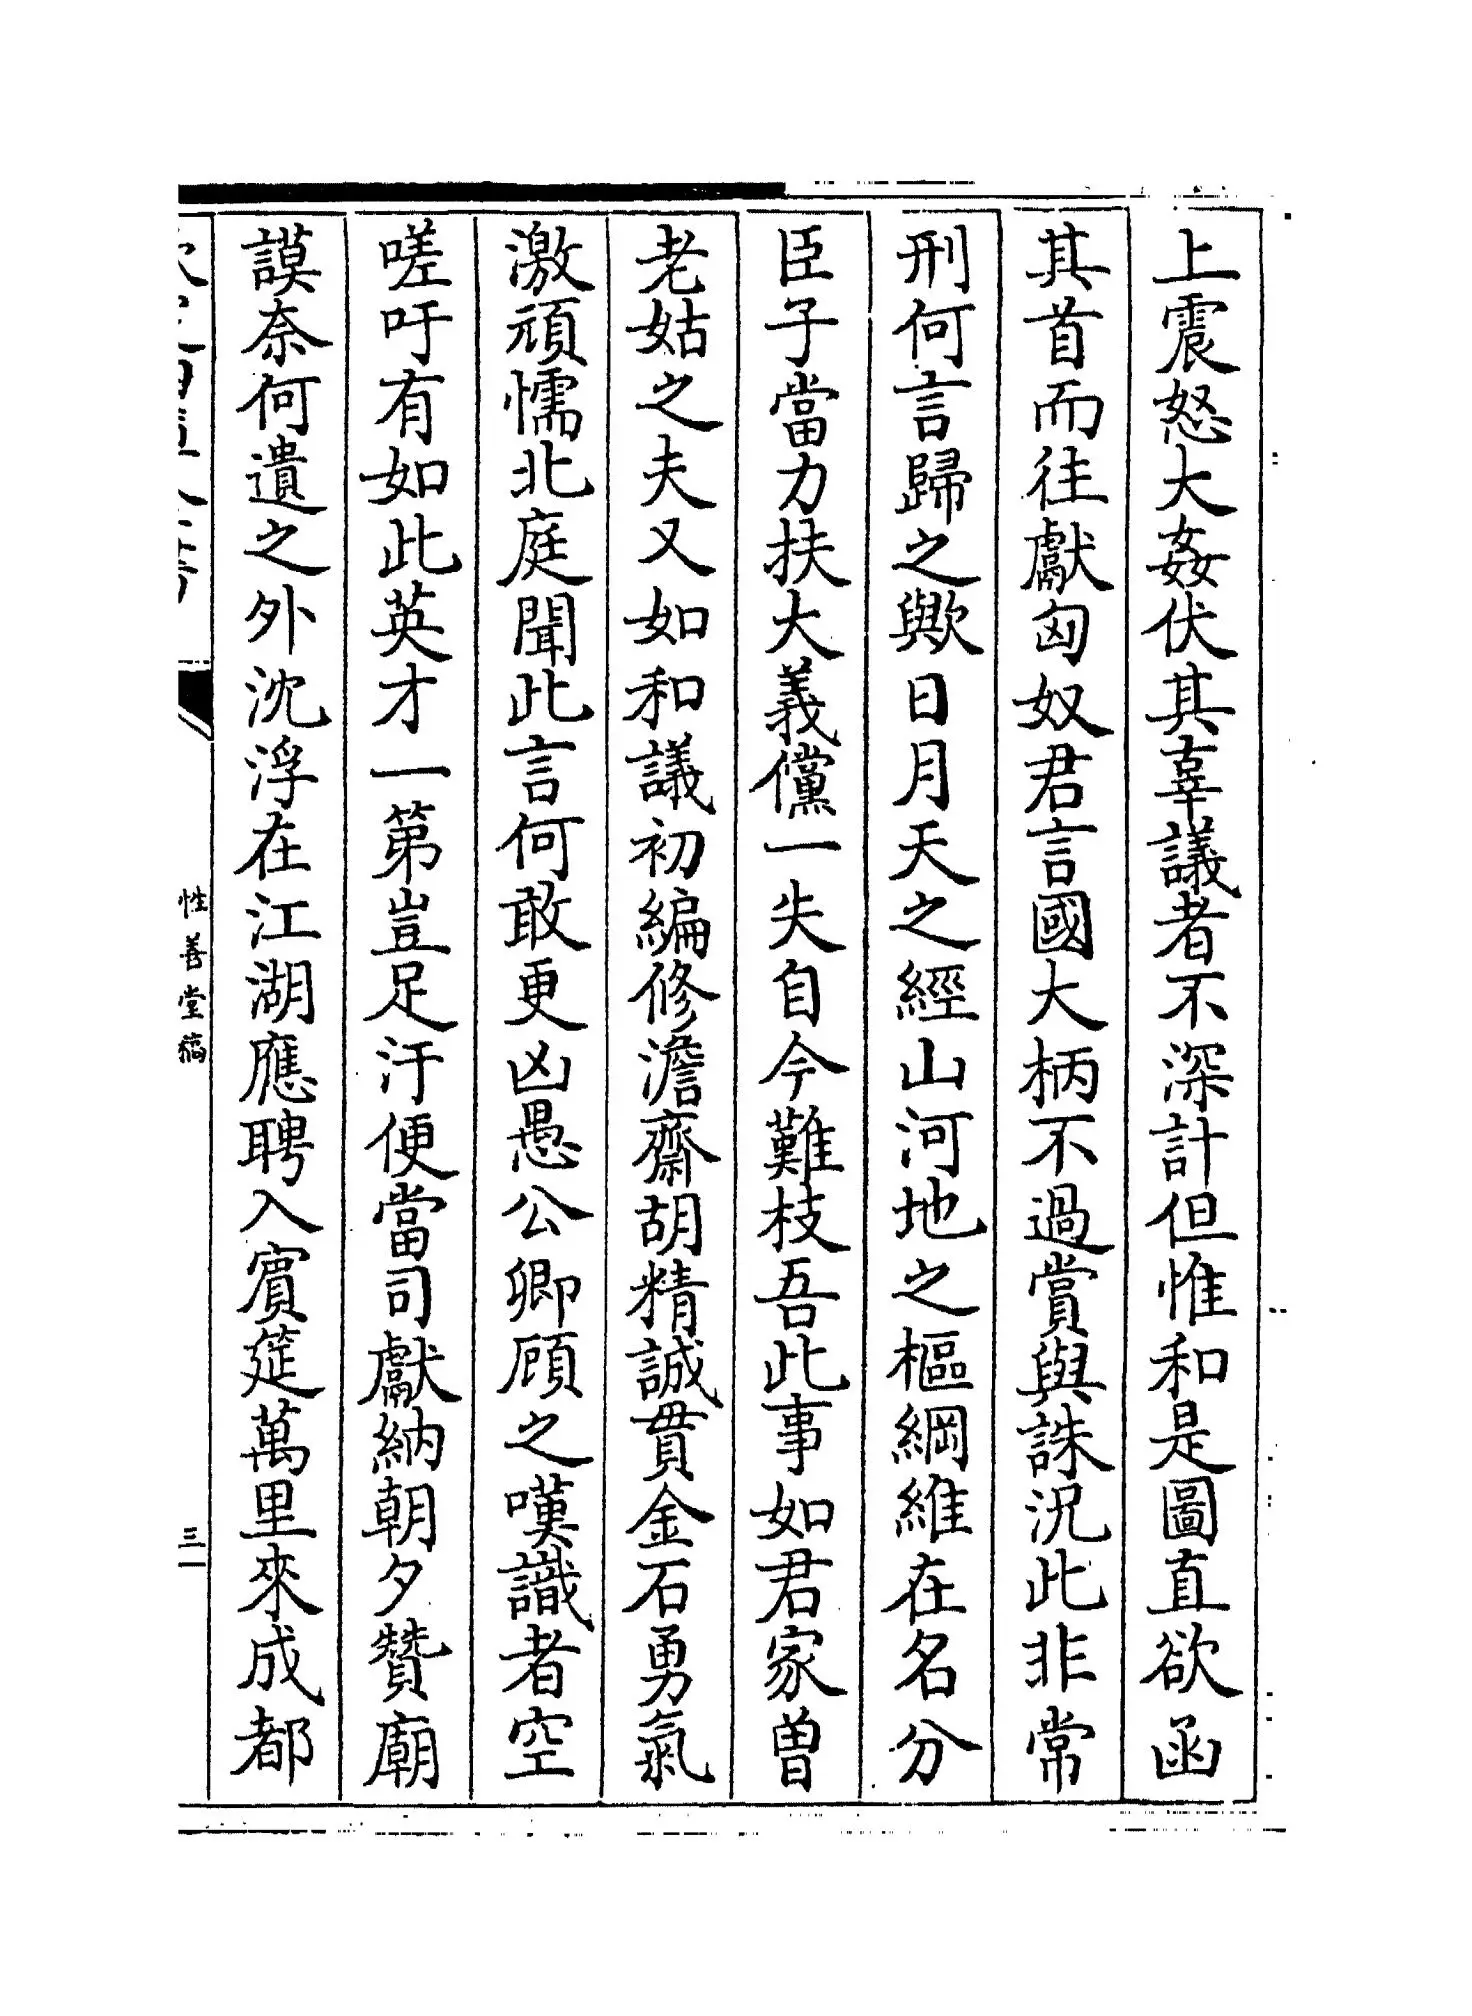 上震怒大姦伏其辜議者不深計但惟和是圖直欲函
其首而往獻匈奴君言國大柄不過賞與誅況此非常
刑何言歸之歟日月天之經山河地之樞綱維在名分
臣子當力扶大義儻一失自今難枝吾此事如君家曽
老姑之夫又如和議初編修澹齋胡精誠貫金石勇氣
激頑懦北庭聞此言何敢更凶愚公卿顧之嘆識者空
嗟吁有如此英才一第豈足汙便當司獻納朝夕贊廟
謨奈何遺之外沈浮在江湖應聘入賓筵萬里來成都
性善堂稿
三